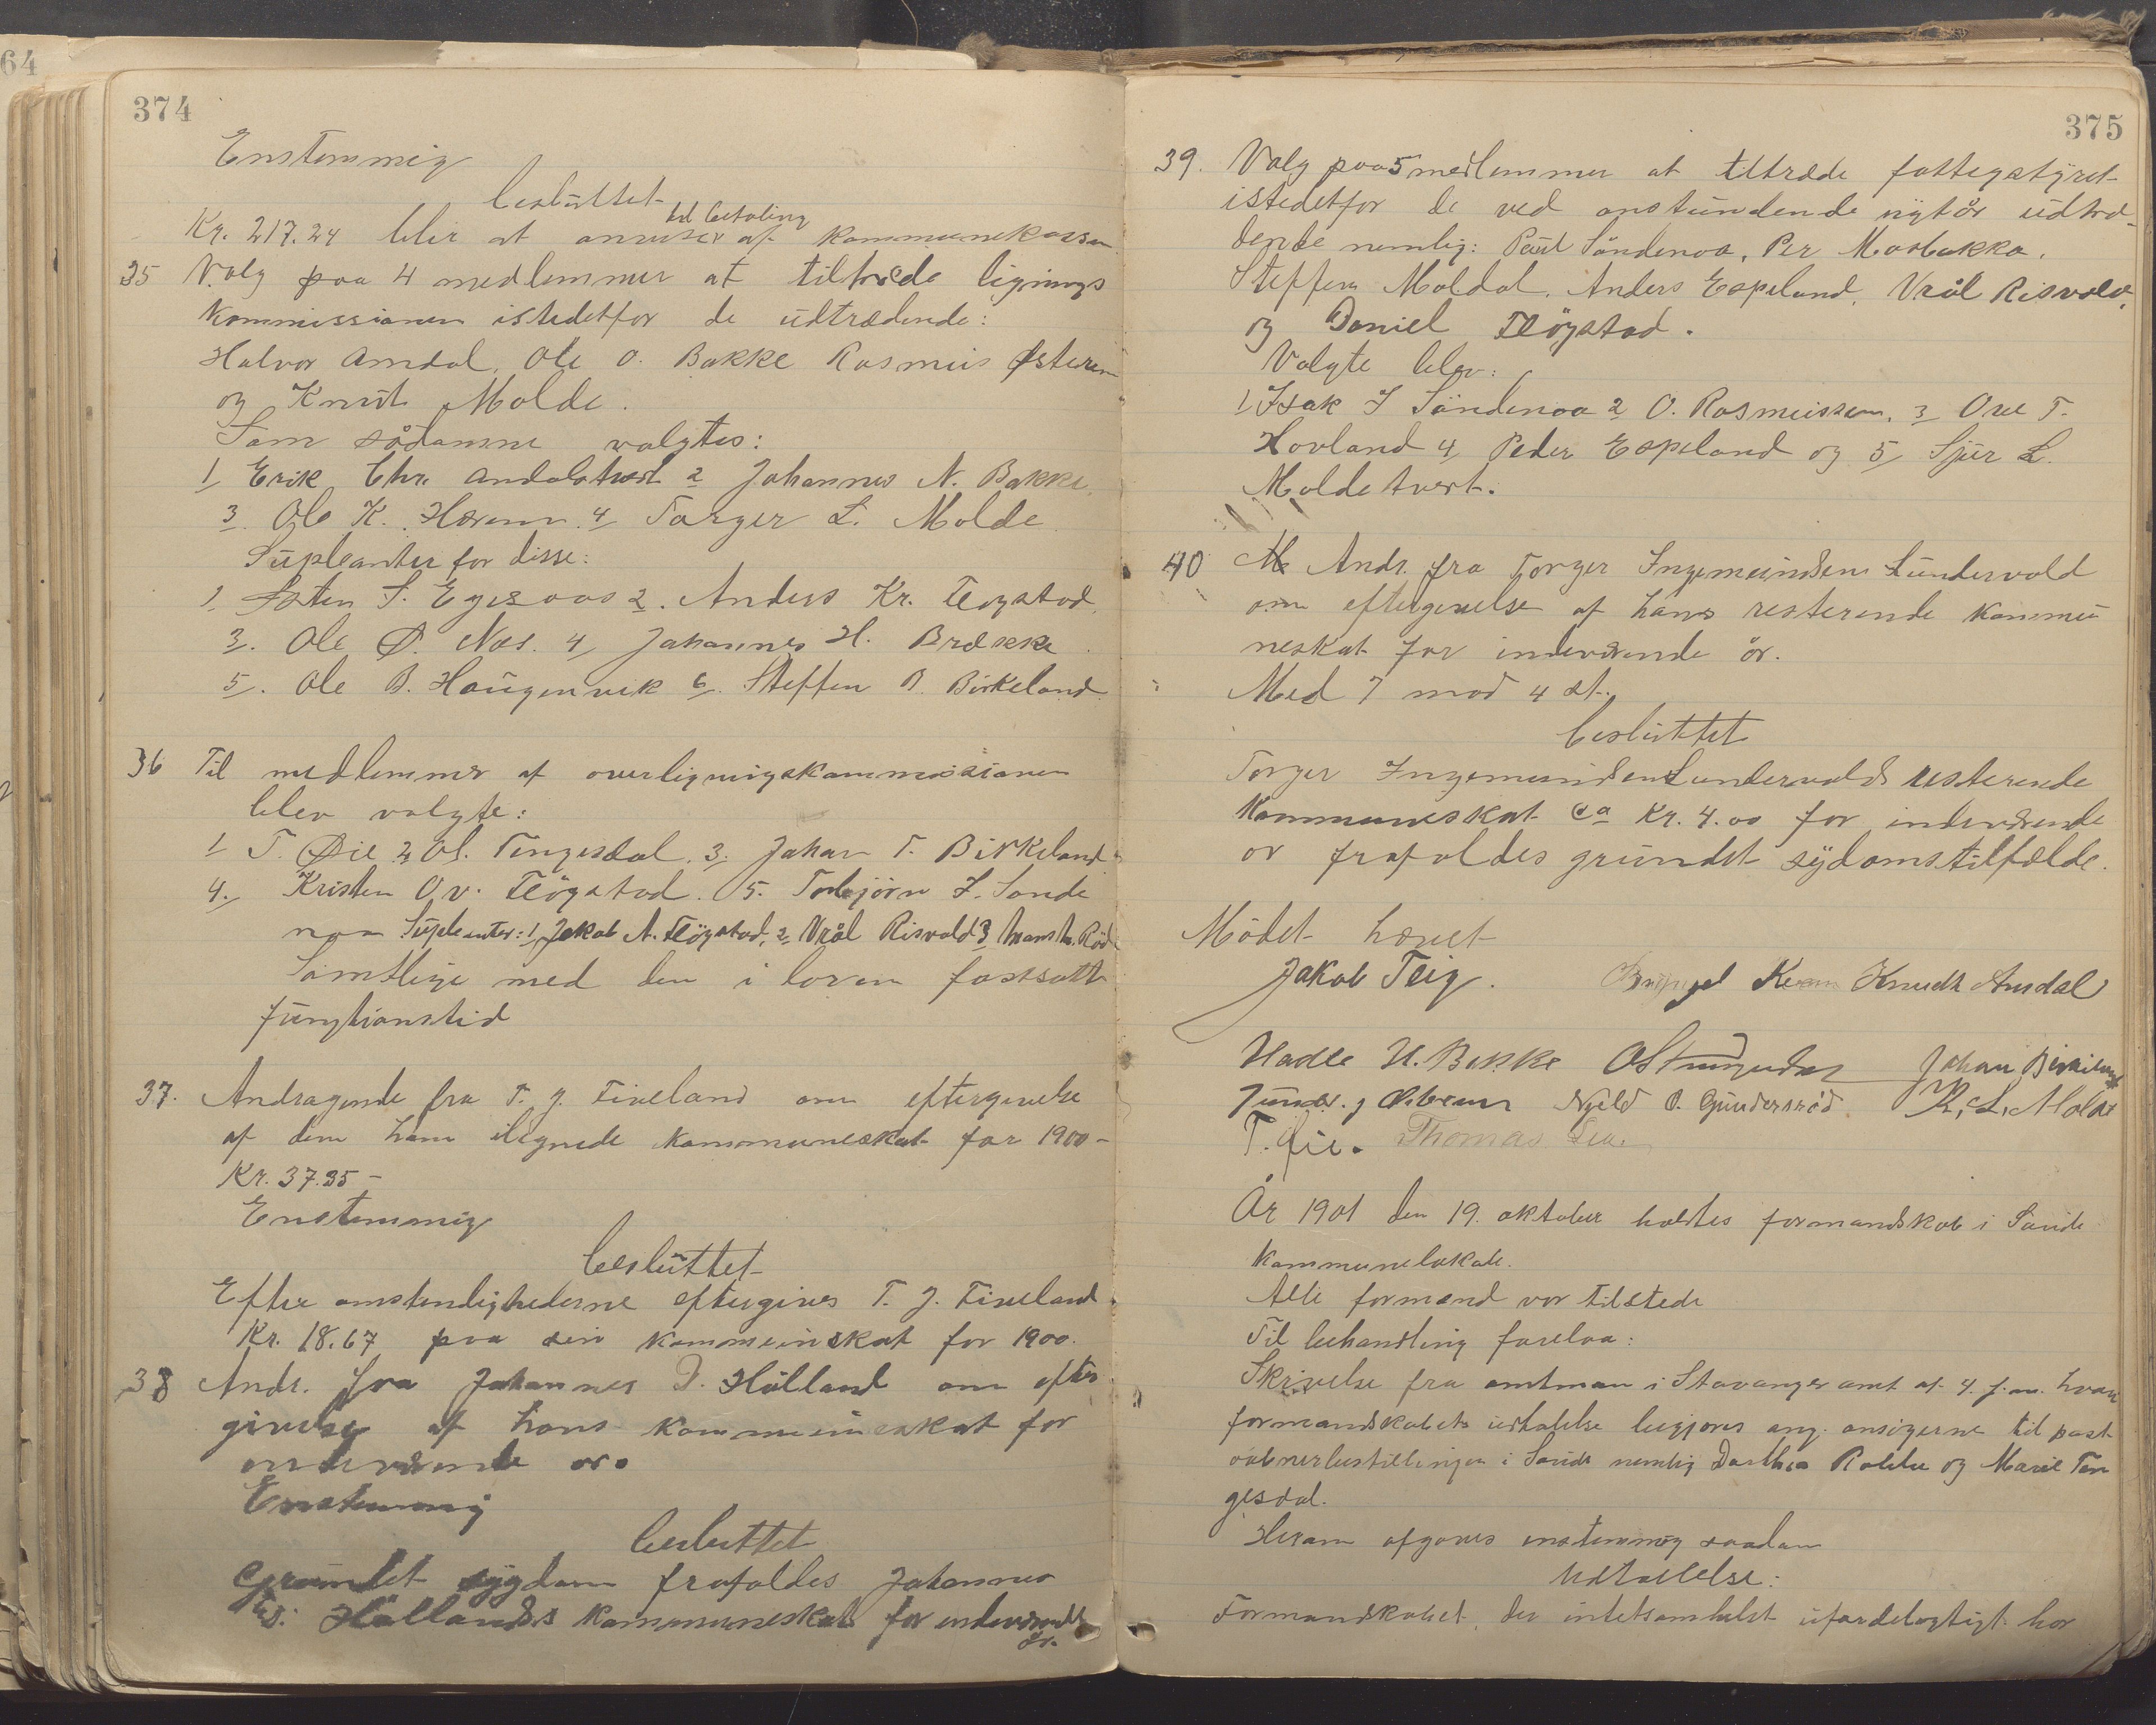 64
374
Enstemmig
besluttet
Kr. 217.24 blir at anviser til betaling af kommunekassen
35 Valg paa 4 medlemmer at tiltræde lignings
kommissionen istedetfor de udtrædende:
Halvor Amdal, Ole O. Bakke Rasmus Østerem
og Knut Molde.
Som sådanne valgtes:
1 Erik Chr. Andalstvert 2 Johannes N. Bakke.
3. Ole K. 4 Torger L. Molde
Supleanter for disse:
1 S. 2. Anders Kr. Fløgstad
3. Ole Ø. Nes. 4 Johannes H. Brække
5. Ole B. Haugenvik 6. Steffen B. Birkeland
36 Til medlemmer af overligningskommissionen
blev valgte:
1 T. Øie 2 Ol. Tengesdal. 3. Johan T. Birkeland
4. Kristen Ov. Fløgstad. 5. Torbjørn I. Sande
noa Supleanter: 1 Jakob A. Fløgstad, 2 Vrål Risvold 3
Samtlige med den i loven fastsatte
fungtionstid
37. Andragende fra T. J. Fiveland om eftergivelse
af den ham ilignede kommuneskat for 1900 -
Kr. 37.35 -
Enstemmig
besluttet
Efter omstendighederne eftergives T. J. Fiveland
Kr. 18.67 paa sin kommuneskat for 1900.
38 Andr. fra Johannes Hålland om efter
givelse af hans kommuneskat for
inderværende år.
Enstemmig
besluttet
Grundet sygdom frafaldes Johannes
Hållands kommuneskat for inderværende
år.
375
39. Valg paa 5 medlemmer at tiltræde fattigstyret
istedetfor de ved anstundende nytår udtræ-
dende nemlig: Paul Søndenaa, Per Mosbakka,
Steffen Moldal, Anders Espeland, Vrål Risvold,
og Daniel Fløgstad.
Valgte blev:
1 Isak I Søndenaa 2 O. Rasmussen, 3 Ove T.
Hovland 4 Peder Espeland og 5 Sjur L.
Moldetvert.
40 Andr. fra Torger Ingemundsen Lundervold
om eftergivelse af hans resterende kommu
neskat for inderværende år.
Med 7 mod 4 st.
besluttet
Torger Ingemundsen Lundervolds resterende
Kommuneskat ca Kr. 4.00 for inderværende
år frafaldes grundet sydomstilfælde.
Mødet hævet
Jakob Teig. Knudt Amdal
Hadle H. Bakke Johan Birkeland
Gunder. J Njeld O. Gundersrød K. L. Molde
T. Øie. Thomas
År 1901 den 19. oktober holdtes formandskab i Sande
kommunelokale.
Alle formænd var tilstede
Til behandling forelaa:
Skrivelse fra amtman i Stavanger amt af 4. f.m. hvori
formandskabets udtalelse begjæres ang. ansøgerne til post
åbnerbestillingen i Sande nemlig Dorthea og Marie Ten
gesdal.
Herom afgaves enstemmig saadan
Udtallelse:
Formandskabet, der intetsomhelst ufordelagtigt har